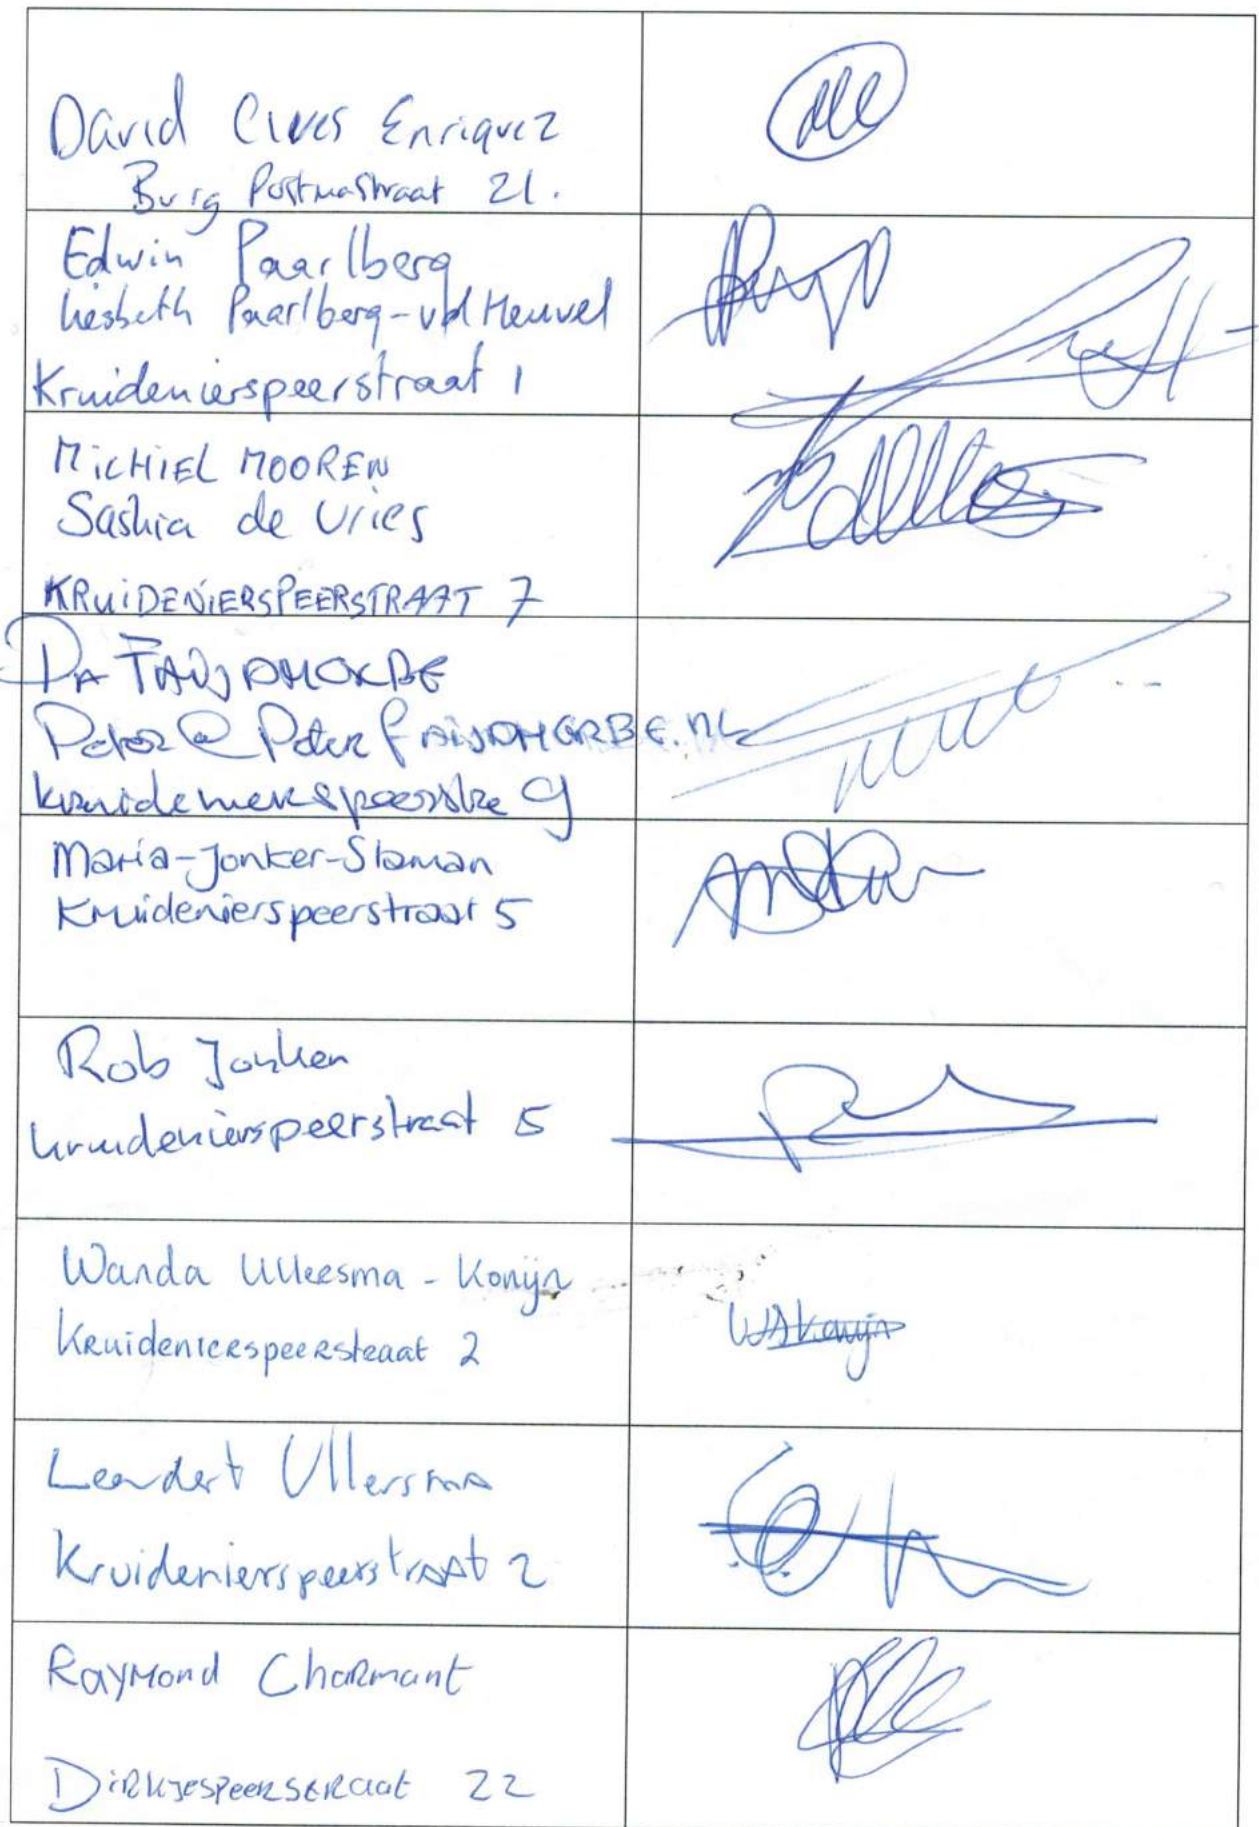 David Cives Enriquez
Burg Postmastraat 21.
Edwin Paarlberg
Liesbeth Paarlberg-vd Heuvel
Kruidenierspeerstraat 1
MICHIEL MOOREN
Saskia de Vries
KRUIDENIERSPEERSTRAAT 7
PA
Peter @ Peter
9
Maria-Jonker-Slaman
Kruidenierspeerstraat 5
Rob Jonker
kruidenierspeerstraat 5
Wanda Ullersma - Konijn
Kruidenierspeerstraat 2
WSKonijn
Leendert Ullersma
Kruidenierspeerstraat 2
Raymond Charmant
Dirkjespeerstraat 22